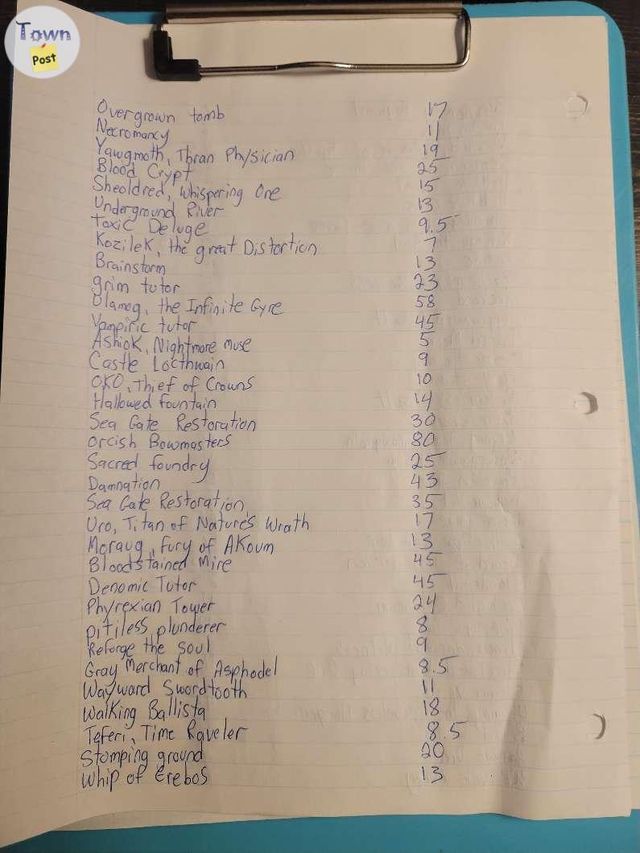 Town
Post
Overgrown tomb 17
Necromancy 11
Yawgmoth, Thran Physician 19
Blood Crypt 25
Sheoldred, whispering One 15
Underground River 13
Toxic Deluge 9.5
Kozilek, the great Distortion 7
Brainstorm 13
grim tutor 23
Ulamog, the Infinite Gyre 58
Vampiric tutor 45
Ashiok, Nightmare muse 5
Castle Locthwain 9
OKO, Thief of Crowns 10
Hallowed fountain 14
Sea Gate Restoration 30
Orcish Bowmasters 80
Sacred foundry 25
Damnation 43
Sea Gate Restoration 35
Uro, Titan of Nature's Wrath 17
Moraug, Fury of Akoum 13
Bloodstained Mire 45
Denomic Tutor 45
Phyrexian Tower 24
pitiless plunderer 8
Reforge the soul 9
Gray Merchant of Asphodel 8.5
Wayward Swordtooth 11
Walking Ballista 18
Teferi, Time Raveler 8.5
Stomping ground 20
Whip of Erebos 13